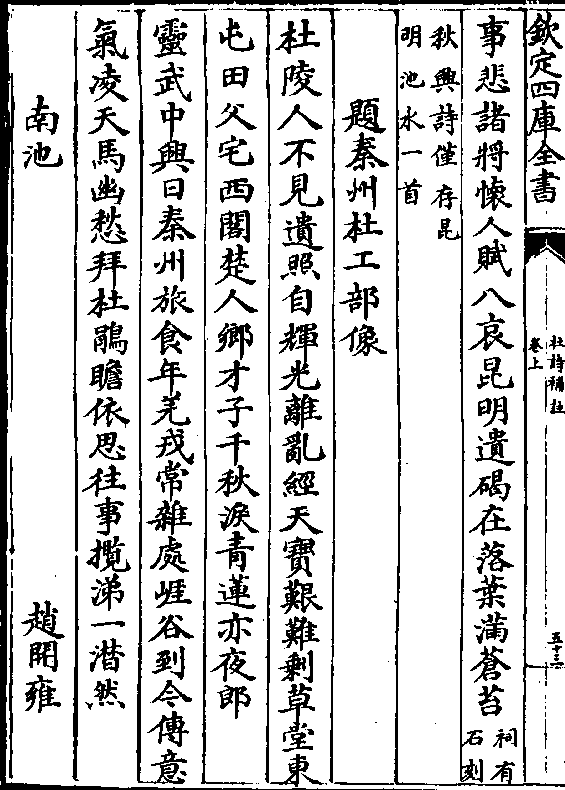 欽定四庫全書
杜詩補註
卷上
五十三
事悲諸將懷人賦八哀昆明遺碣在落葉滿蒼苔祠有石刻
秋興詩僅存昆明池水一首
題秦州杜工部像
杜陵人不見遺照自輝光離亂經天寶艱難剩草堂東
屯田父宅西閣楚人鄉才子千秋淚青蓮亦夜郎
靈武中興日秦州旅食年羌戎常雜處崖谷到今傳意
氣凌天馬幽愁拜杜鵑瞻依思往事攬涕一潸然
南池
趙開雍